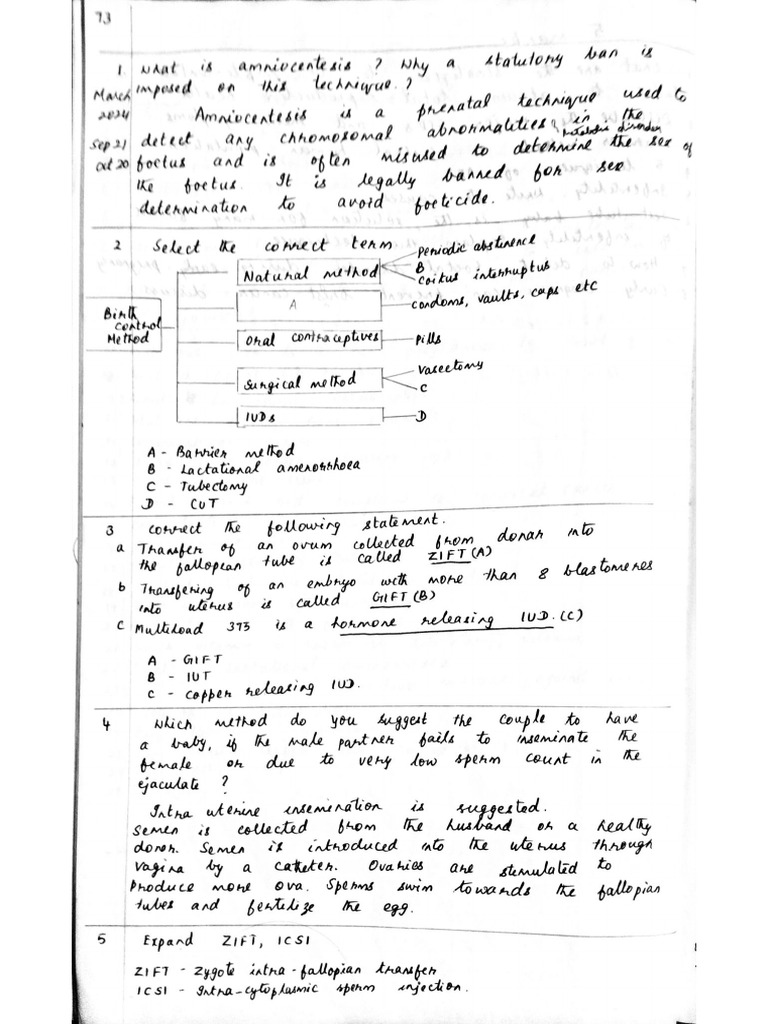 73
1 What is amniocentesis ? Why a statutory ban is
March imposed on this technique. ?
2024 Amniocentesis is a prenatal technique used to
Sep 21 detect any chromosomal abnormalities & metabolic disorder in the
Oct 20 foetus and is often misused to determine the sex of
the foetus. It is legally banned for sex
determination to avoid foeticide.
2 Select the correct term
Birth Control Method
Natural method
Periodic abstinence
B
Coitus interruptus
A
Condoms, vaults, caps etc
Oral contraceptives
Pills
Surgical method
Vasectomy
C
IUDs
D
A - Barrier method
B - Lactational amenorrhoea
C - Tubectomy
D - CuT
3 Correct the following statement.
a Transfer of an ovum collected from donar into
the fallopean tube is called ZIFT (A)
b Transfering of an embryo with more than 8 blastomeres
into uterus is called GIFT (B)
c Multiload 375 is a hormone releasing IUD. (C)
A - GIFT
B - IUT
C - copper releasing IUD.
4 Which method do you suggest the couple to have
a baby, if the male partner fails to inseminate the
female or due to very low sperm count in the
ejaculate ?
Intra uterine insemination is suggested.
Semen is collected from the husband or a healthy
donor. Semen is introduced into the uterus through
vagina by a catheter. Ovaries are stimulated to
produce more ova. Sperms swim towards the fallopian
tubes and fertilize the egg.
5 Expand ZIFT, ICSI
ZIFT - Zygote intra-fallopian transfer
ICSI - Intra-cytoplasmic sperm injection.